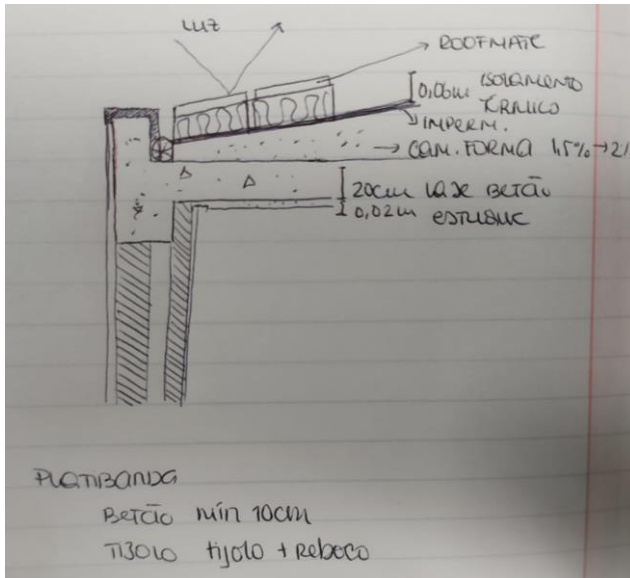 LUZ
ROOFMATE
0,06m ISOLAMENTO
TÉRMICO
IMPERM.
CAM. FORMA 1,5% → 2%
20cm LAJE BETÃO
0,02m ESTUQUE
PLATIBANDA
BETÃO mín 10cm
TIJOLO tijolo + Reboco